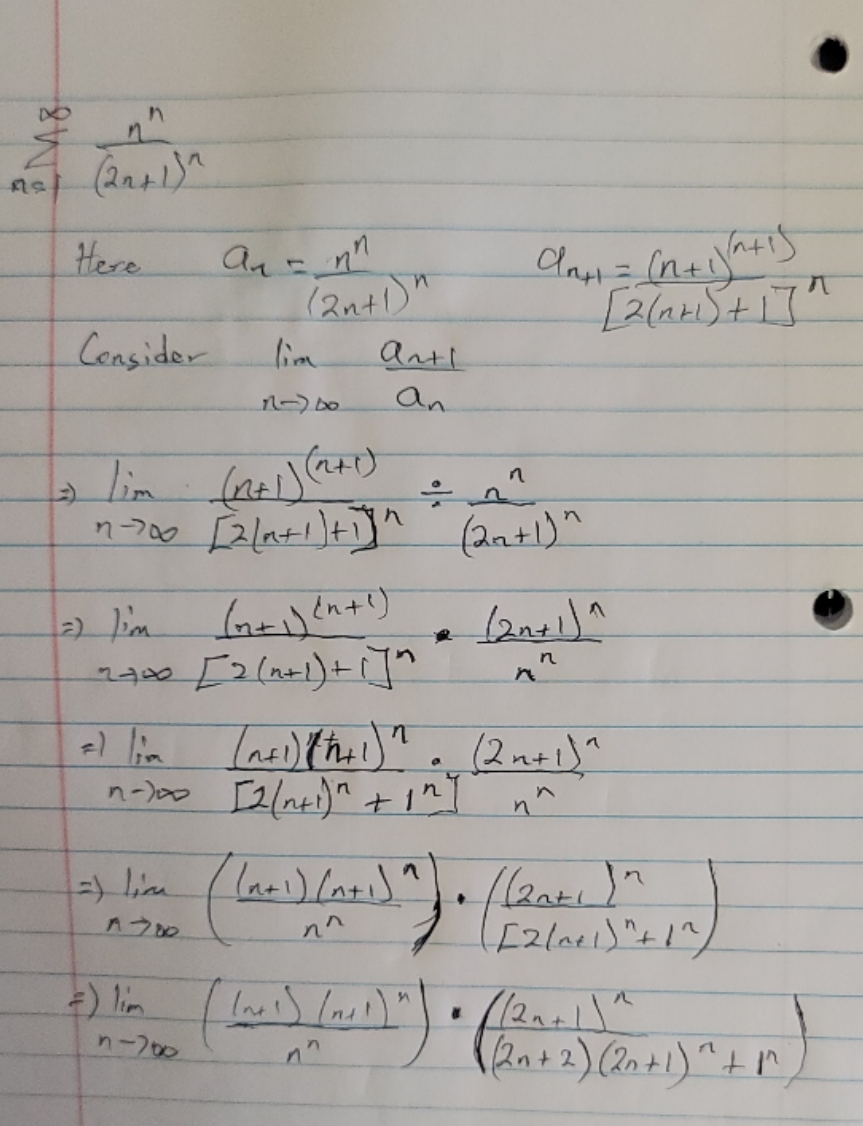 ∞
∑ nⁿ / (2n+1)ⁿ
n=1
Here aₙ = nⁿ / (2n+1)ⁿ aₙ₊₁ = (n+1)⁽ⁿ⁺¹⁾ / [2(n+1)+1]ⁿ
Consider lim n→∞ aₙ₊₁ / aₙ
⇒ lim n→∞ (n+1)⁽ⁿ⁺¹⁾ / [2(n+1)+1]ⁿ ÷ nⁿ / (2n+1)ⁿ
⇒ lim n→∞ (n+1)⁽ⁿ⁺¹⁾ / [2(n+1)+1]ⁿ · (2n+1)ⁿ / nⁿ
⇒ lim n→∞ (n+1)(n+1)ⁿ / [2(n+1)ⁿ + 1ⁿ] · (2n+1)ⁿ / nⁿ
⇒ lim n→∞ ((n+1)(n+1)ⁿ / nⁿ) · ((2n+1)ⁿ / [2(n+1)ⁿ + 1ⁿ)
⇒ lim n→∞ ((n+1)(n+1)ⁿ / nⁿ) · ((2n+1)ⁿ / (2n+2)(2n+1)ⁿ + 1ⁿ)